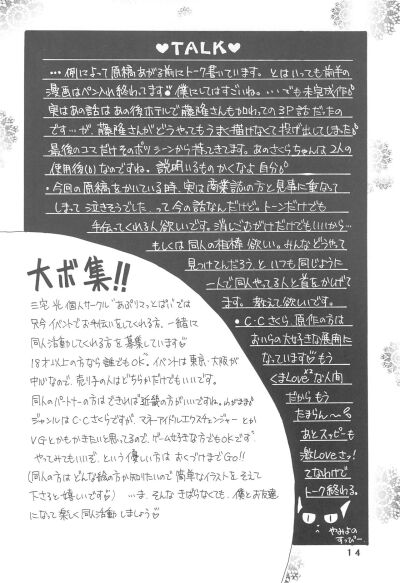 ♥TALK♥
…例によって原稿あがる前にトーク書いています。とはいっても前半の
漫画はペン入れ終わってます。僕にしてはすごいね。…でも未完成作。
・今回の原稿をかいている時、実は商業誌の方と見事に重なって
しまって泣きそうでした…って今の話なんだけど。トーンだけでも
手伝ってくれる人欲しいです。消しゴムかけだけでもいいから…
もしくは同人の相棒欲しい。みんなどうやって
見つけてんだろうといつも同じように
一人で同人やってる人と首をかしげて
ます。教えて欲しいです。
・C・Cさくら、原作の方は
おいらの大好きな展開に
なっています もう
くまLoveな人間
だからもう
たまらん〜
あとスッピーも
激Loveさっ!
てなわけで
トーク終わる。
やみよの
すっぴー…
大ボ集!!
三宅光個人サークル"あぷりこっとぱい"では
只今イベントでお手伝いをしてくれる方、一緒に
同人活動してくれる方を募集しています
18才以上の方なら誰でもOK。イベントは東京・大阪が
中心なので、売り子の人はどちらかだけでもいいです。
同人のパートナーの方はできれば近畿の方がいいですね。わがまま
ジャンルはC・Cさくらですが、マネーアイドルエクスチェンジャーとか
VGとかもかきたいと思ってるので、ゲーム好きな方でもOKです
やってみてもいいぞ、という優しい方はおくづけまでGo!!
(同人の方はどんな絵の方か知りたいので簡単なイラストをそえて
下さると嬉しいです) …ま、そんなきばらなくても、僕とお友達
になって楽しく同人活動しましょう
14